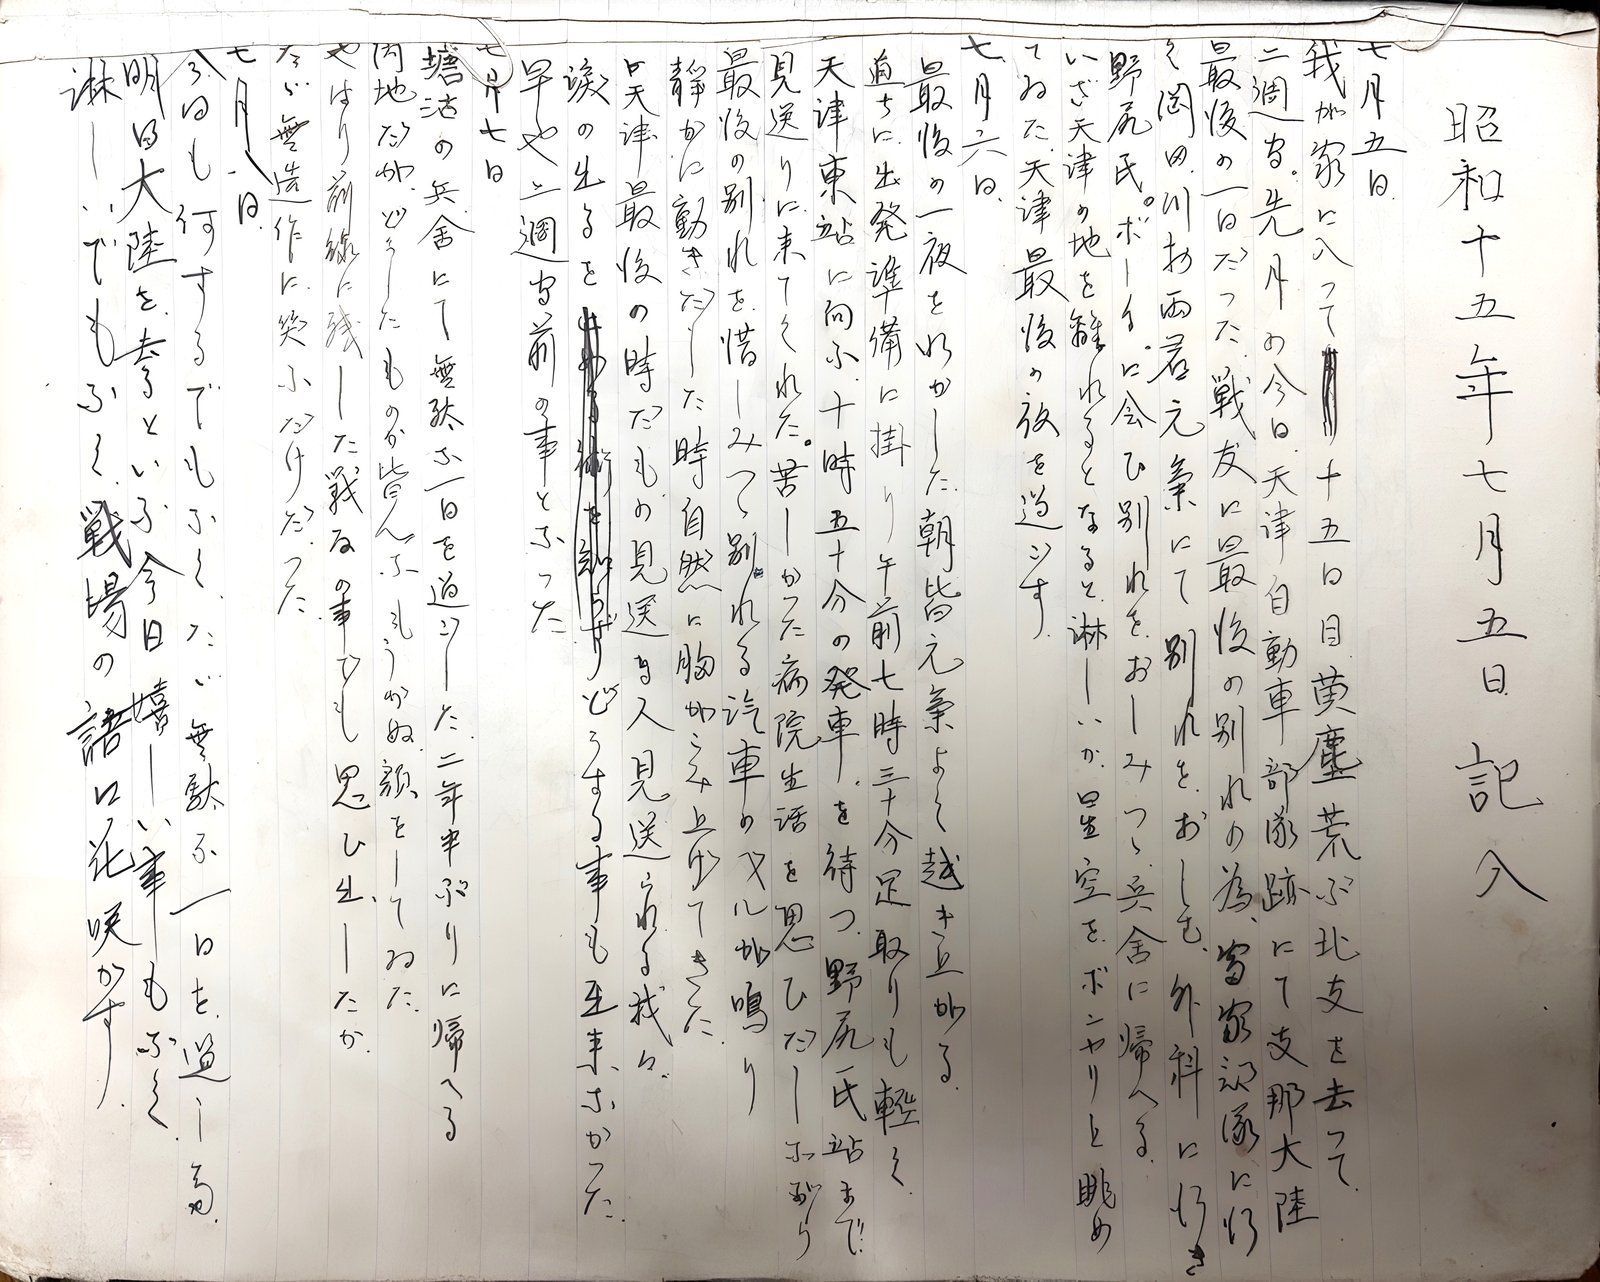 昭和十五年七月五日 記入
七月五日
我が家に入って十五日目黄塵荒ぶ北支を去って
二週間。先月の今日天津自動車部隊跡にて支那大陸
最後の一日だった 戦友に最後の別れの為、富家部隊に行
く 岡田川村両君元気にて別れをおしむ、外科に行き
野尻氏。ボーイに会ひ別れをおしみつゝ兵舎に帰へる
いざ天津の地を離れるとなると淋しいか星空をボンヤリと眺め
てゐた 天津最後の夜を過ごす
七月六日
最後の一夜を明かした朝皆元気よく起き上がる
直ちに出発準備に掛り午前七時三十分足取りも軽く
天津東站に向ふ 十時五十分の発車を待つ 野尻氏站まで
見送りに来てくれた。苦しかった病院生活を思ひだしながら
最後の別れを惜しみつゝ別れる 汽車のベルが鳴り
静かに動きだした時自然に胸がこみ上げてきた
只天津最後の時だもの見送る人見送られる我々
涙の出るをどうする事も出来なかった
早や二週間前の事となった
七月七日
塘沽の兵舎にて無駄な一日を過ごした 二年半ぶりに帰へる
内地だがどうしたものか皆んなもうかぬ顔をしてゐた
やはり前線に残した戦友の事でも思ひ出したか
たゞ無造作に笑ふだけだった
七月八日
今日も何するでもなくたゞ無駄な一日を過した
明日大陸を去るといふ今日嬉しい事もなく
淋しいでもなく戦場の語に花咲かす